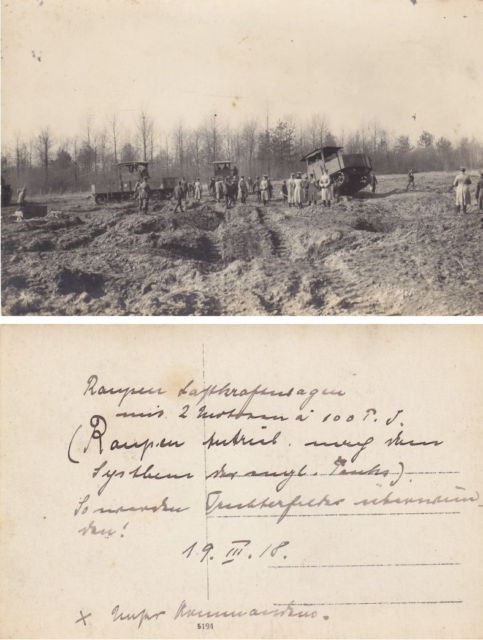 Raupen Lastkraftwagen
mit 2 Motoren à 100 P.S.
(Raupen Antrieb. nach dem
System der engl. Tanks).
So werden Trichterfelder überwun-
den!
19. III. 18.
x Unser Kommandeur.
5194